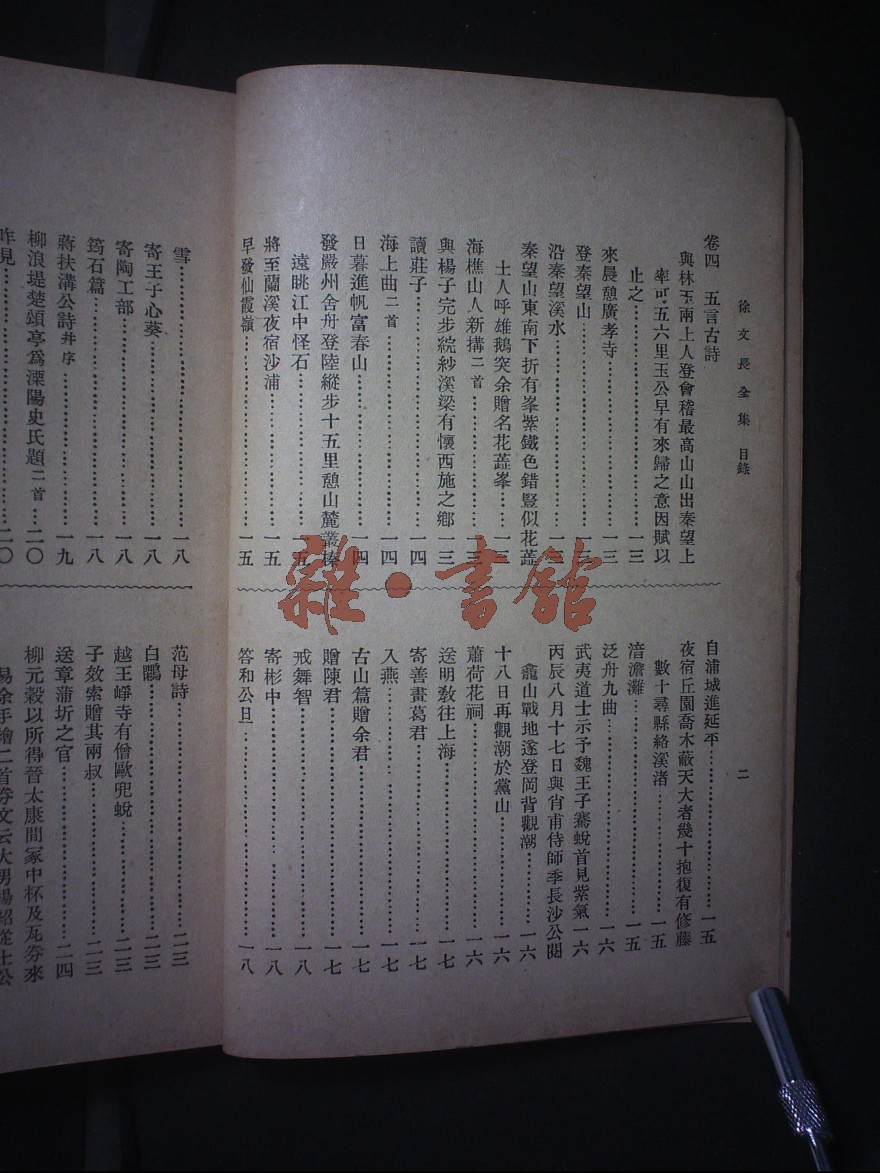 徐文長全集 目錄
二
卷四 五言古詩
與林玉兩上人登會稽最高山山出秦望上
率可五六里玉公早有來歸之意因賦以
止之…一三
來晨憩廣孝寺…一三
登秦望山…一三
沿秦望溪水…一三
秦望山東南下折有峯紫鐵色錯豎似花蕋
土人呼雄鵝突余贈名花蕋峯…一三
海樵山人新搆二首…一三
與楊子完步綄紗溪梁有懷西施之鄉…一三
讀莊子…一四
海上曲二首…一四
日暮進帆富春山…一四
發嚴州舍舟登陸縱步十五里憩山麓叢榛
遠眺江中怪石…一五
將至蘭溪夜宿沙浦…一五
早發仙霞嶺…一五
自浦城進延平…一五
夜宿丘園喬木蔽天大者幾十抱復有修藤
數十尋縣絡溪渚…一五
湆澹灘…一五
泛舟九曲…一六
武夷道士示予魏王子騫蛻首見紫氣一六
丙辰八月十七日與肖甫侍師季長沙公閱
龕山戰地遂登岡背觀潮…一六
十八日再觀潮於黨山…一六
蕭荷花祠…一六
送明敎往上海…一七
寄善畫葛君…一七
入燕…一七
古山篇贈余君…一七
贈陳君…一七
戒舞智…一八
寄彬中…一八
答和公旦…一八
雪…一八
寄王子心葵…一八
寄陶工部…一八
筠石篇…一八
蔣扶溝公詩并序…一九
柳浪堤楚頌亭爲溧陽史氏題二首…二〇
昨見…二〇
范母詩…二三
白鷳…二三
越王崢寺有僧歐兜蛻…二三
子效索贈其兩叔…二三
送章蒲圻之官…二四
柳元穀以所得晉太康間冢中杯及瓦券來
易余手繪二首券文云大男楊紹從土公
雜·書館